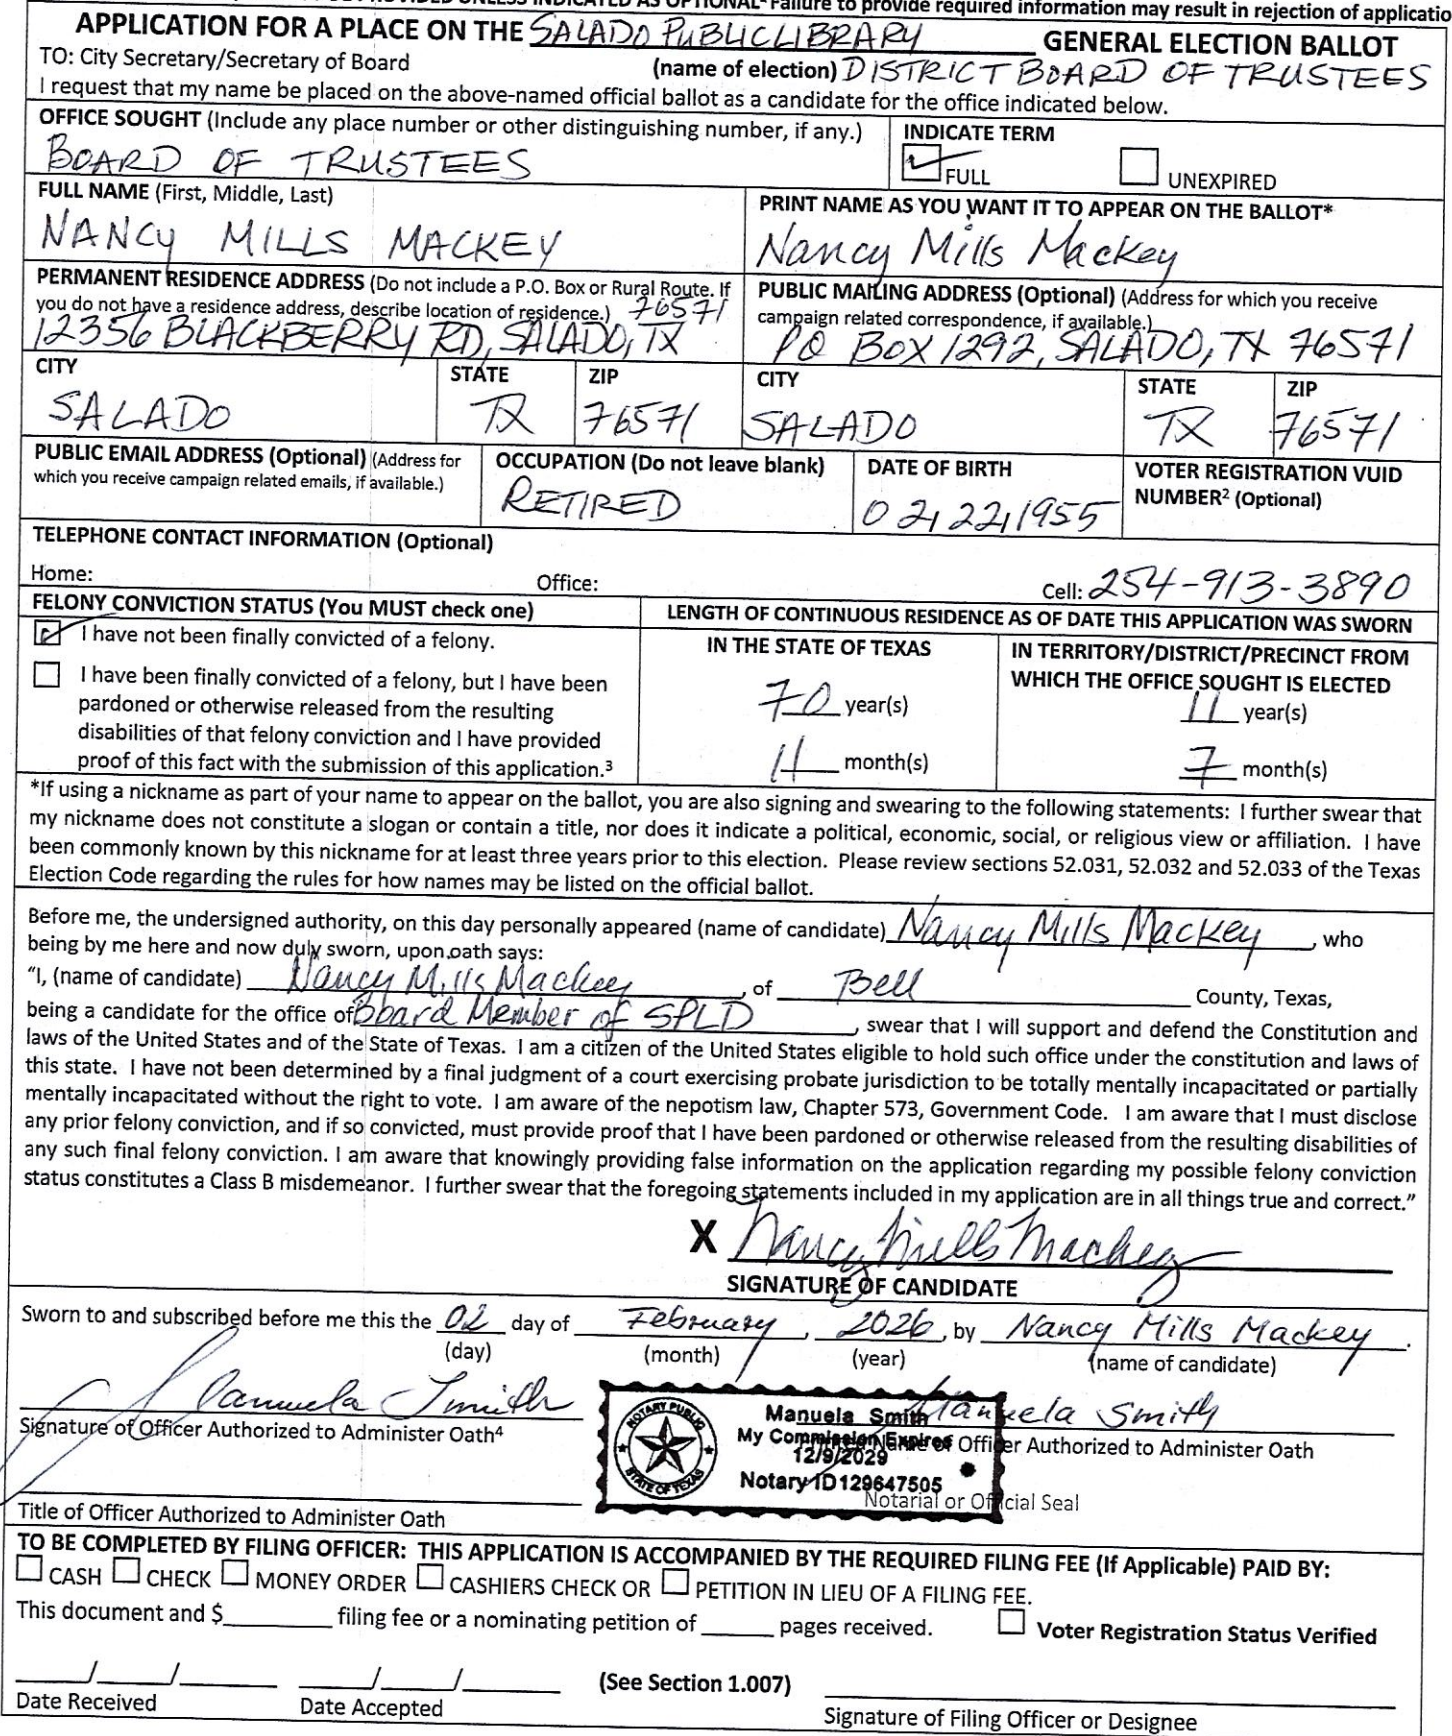 Failure to provide required information may result in rejection of applicatio
APPLICATION FOR A PLACE ON THE SALADO PUBLIC LIBRARY GENERAL ELECTION BALLOT
TO: City Secretary/Secretary of Board (name of election) DISTRICT BOARD OF TRUSTEES
I request that my name be placed on the above-named official ballot as a candidate for the office indicated below.
OFFICE SOUGHT (Include any place number or other distinguishing number, if any.)
BOARD OF TRUSTEES
INDICATE TERM
FULL UNEXPIRED
FULL NAME (First, Middle, Last)
NANCY MILLS MACKEY
PRINT NAME AS YOU WANT IT TO APPEAR ON THE BALLOT*
Nancy Mills Mackey
PERMANENT RESIDENCE ADDRESS (Do not include a P.O. Box or Rural Route. If
you do not have a residence address, describe location of residence.) 76571
12356 BLACKBERRY RD, SALADO, TX
PUBLIC MAILING ADDRESS (Optional) (Address for which you receive
campaign related correspondence, if available.)
PO BOX 1292, SALADO, TX 76571
CITY STATE ZIP CITY STATE ZIP
SALADO TX 76571 SALADO TX 76571
PUBLIC EMAIL ADDRESS (Optional) (Address for
which you receive campaign related emails, if available.)
OCCUPATION (Do not leave blank)
RETIRED
DATE OF BIRTH
02,22,1955
VOTER REGISTRATION VUID
NUMBER² (Optional)
TELEPHONE CONTACT INFORMATION (Optional)
Home: Office: Cell: 254-913-3890
FELONY CONVICTION STATUS (You MUST check one)
I have not been finally convicted of a felony.
I have been finally convicted of a felony, but I have been
pardoned or otherwise released from the resulting
disabilities of that felony conviction and I have provided
proof of this fact with the submission of this application.³
LENGTH OF CONTINUOUS RESIDENCE AS OF DATE THIS APPLICATION WAS SWORN
IN THE STATE OF TEXAS
70 year(s)
11 month(s)
IN TERRITORY/DISTRICT/PRECINCT FROM
WHICH THE OFFICE SOUGHT IS ELECTED
11 year(s)
7 month(s)
*If using a nickname as part of your name to appear on the ballot, you are also signing and swearing to the following statements: I further swear that
my nickname does not constitute a slogan or contain a title, nor does it indicate a political, economic, social, or religious view or affiliation. I have
been commonly known by this nickname for at least three years prior to this election. Please review sections 52.031, 52.032 and 52.033 of the Texas
Election Code regarding the rules for how names may be listed on the official ballot.
Before me, the undersigned authority, on this day personally appeared (name of candidate) Nancy Mills Mackey, who
being by me here and now duly sworn, upon oath says:
"I, (name of candidate) Nancy Mills Mackey, of Bell County, Texas,
being a candidate for the office of Board Member of SPLD, swear that I will support and defend the Constitution and
laws of the United States and of the State of Texas. I am a citizen of the United States eligible to hold such office under the constitution and laws of
this state. I have not been determined by a final judgment of a court exercising probate jurisdiction to be totally mentally incapacitated or partially
mentally incapacitated without the right to vote. I am aware of the nepotism law, Chapter 573, Government Code. I am aware that I must disclose
any prior felony conviction, and if so convicted, must provide proof that I have been pardoned or otherwise released from the resulting disabilities of
any such final felony conviction. I am aware that knowingly providing false information on the application regarding my possible felony conviction
status constitutes a Class B misdemeanor. I further swear that the foregoing statements included in my application are in all things true and correct."
X Nancy Mills Mackey
SIGNATURE OF CANDIDATE
Sworn to and subscribed before me this the 02 day of February, 2026, by Nancy Mills Mackey.
(day) (month) (year) (name of candidate)
Manuela Smith
Signature of Officer Authorized to Administer Oath⁴
NOTARY PUBLIC
STATE OF TEXAS
Manuela Smith
My Commission Expires
12/9/2029
Notary ID 129647505
Manuela Smith
Name of Officer Authorized to Administer Oath
Notarial or Official Seal
Title of Officer Authorized to Administer Oath
TO BE COMPLETED BY FILING OFFICER: THIS APPLICATION IS ACCOMPANIED BY THE REQUIRED FILING FEE (If Applicable) PAID BY:
CASH CHECK MONEY ORDER CASHIERS CHECK OR PETITION IN LIEU OF A FILING FEE.
This document and $______ filing fee or a nominating petition of ______ pages received. Voter Registration Status Verified
___/___/___ ___/___/___ (See Section 1.007)
Date Received Date Accepted Signature of Filing Officer or Designee